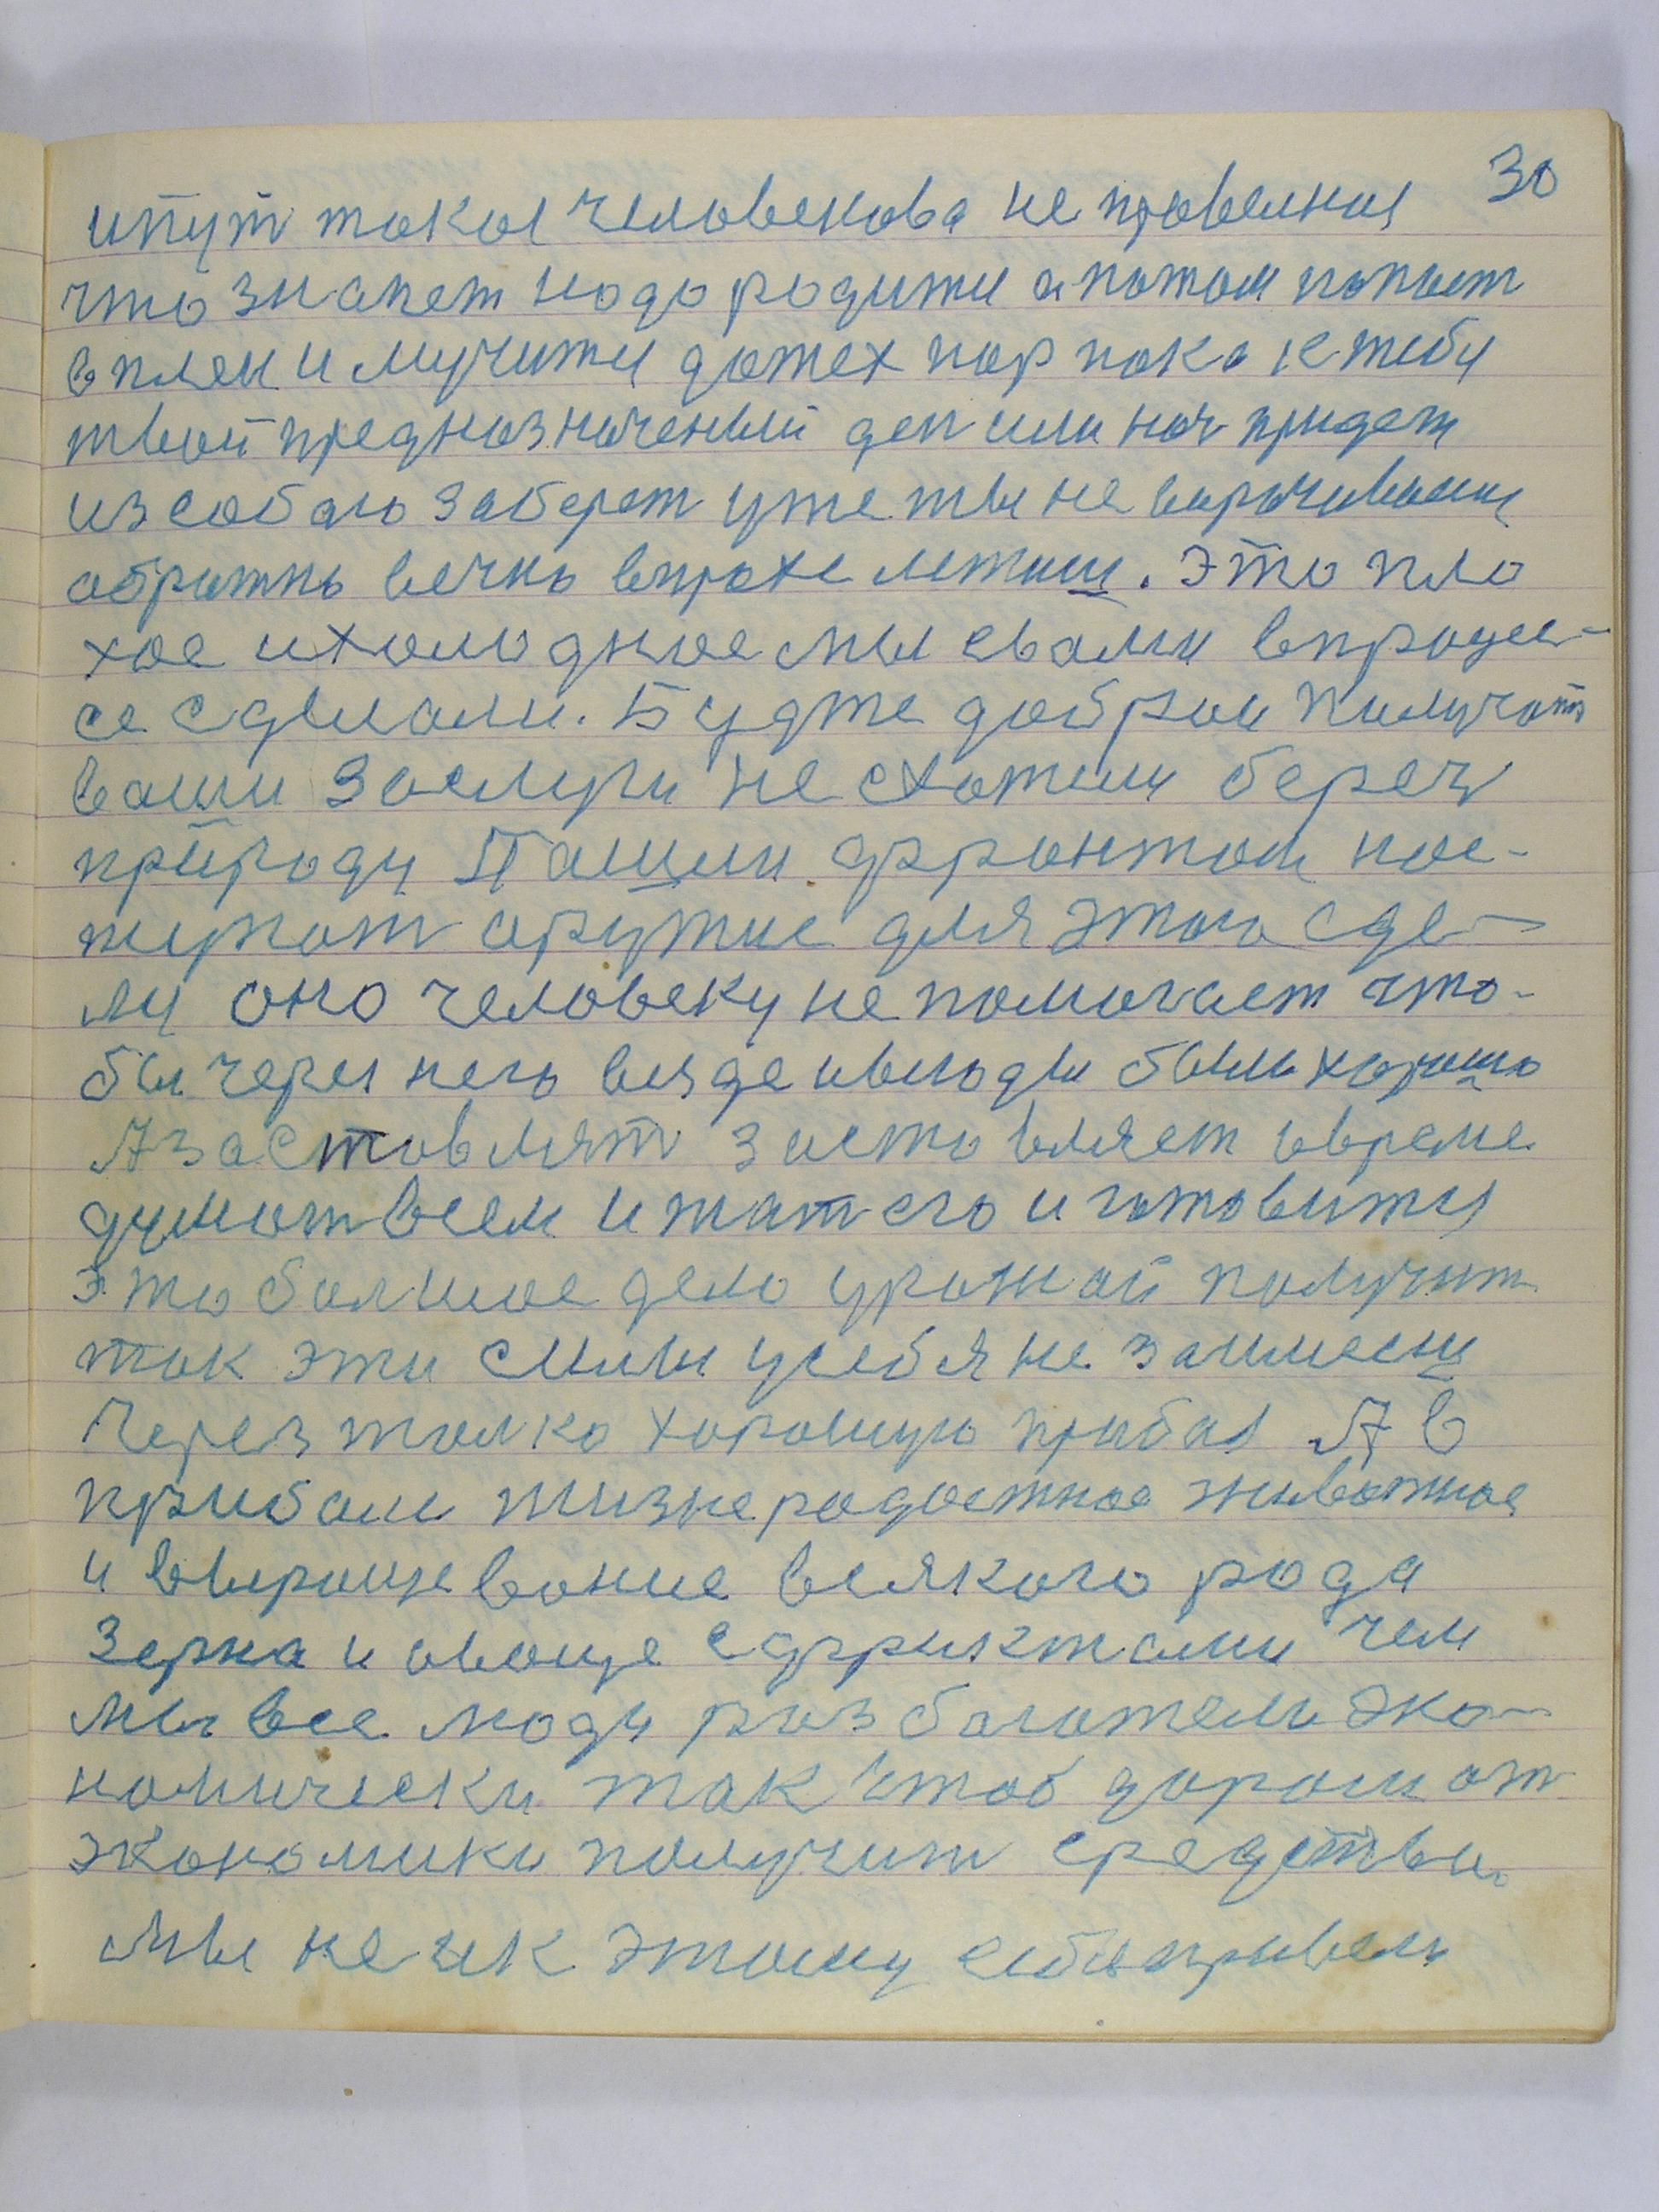 30
ипут такой человекова не правелная
что значет надо родитьи а потом попаст
в плен и мучитьи дотех пор пока к тибу
твой предназначеный ден или ноч придет
из собаю заберет уже ты не ворочиваеш
обратнь вечнь впрахе летиш. Это пло
хое ихолодное мы свами впроцес-
се сделали. Будте доброи получат
ваши заслуги не схотили береч
природу Пашли фронтом пос-
тупат аружие для этого сде-
лу оно человеку не помогает что-
бы через него везде ивлюди были хорошо
А заставлят заставляет овреме
думат всем и жат его и готовитьи
Это болшое дело урожай получит
так эти силы усебя не заимееш
Через толко хорошую прибал А в
прибали жизнерадостное животное
и выращевание всякого рода
Зерна и овоще сфруктами чем
мы все люди разбогатели эко-
номически так чтоб даром от
экономики получит средства.
Мы не ик этому себя привели